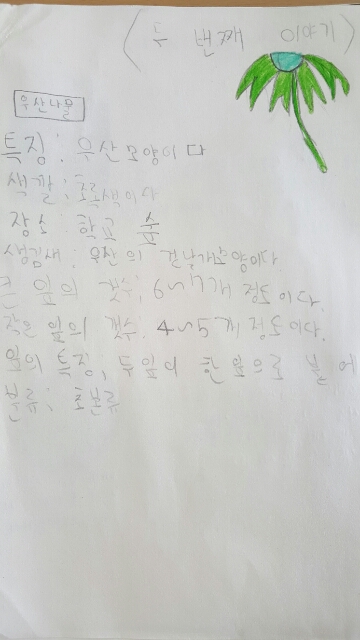 (두 번째 이야기)
우산나물
특징: 우산모양이다
색깔: 초록색이다
장소: 학교 숲
생김새: 우산의 겉날개모양이다.
큰 잎의 갯수:
작은 잎의 갯수: 4~5개 정도이다.
잎의 특징, 두잎이 한 잎으로 붙어
분류: 초본류